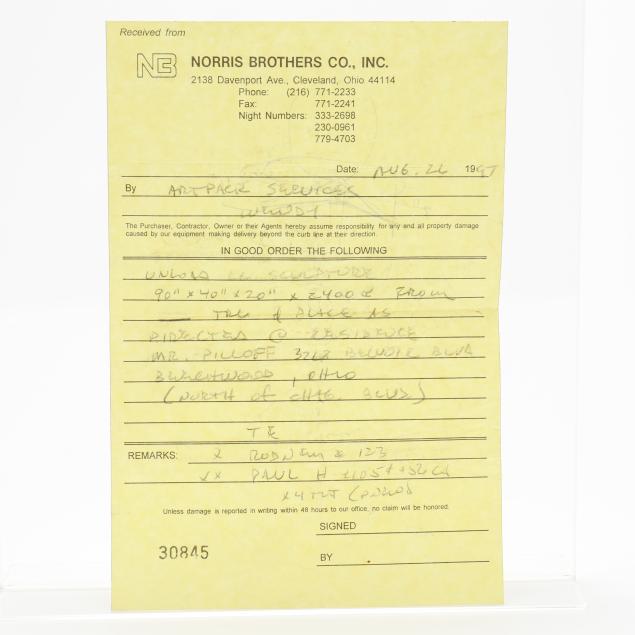 Received from
NB NORRIS BROTHERS CO., INC.
2138 Davenport Ave., Cleveland, Ohio 44114
Phone: (216) 771-2233
Fax: 771-2241
Night Numbers: 333-2698
230-0961
779-4703
Date: AUG. 26 1997
By ARTPACK SERVICES
WENDY
The Purchaser, Contractor, Owner or their Agents hereby assume responsibility for any and all property damage
caused by our equipment making delivery beyond the curb line at their direction.
IN GOOD ORDER THE FOLLOWING
UNLOAD SCULPTURE
90" x 40" x 20" x 2400# FROM
TRK & PLACE AS
DIRECTED @ RESIDENCE
MR. PILLOFF BLVD
BEACHWOOD, OHIO
(NORTH of CHAG. BLVD)
TE
REMARKS: X RODNEY & 123
XX PAUL H
x 4
Unless damage is reported in writing within 48 hours to our office, no claim will be honored.
SIGNED
30845
BY